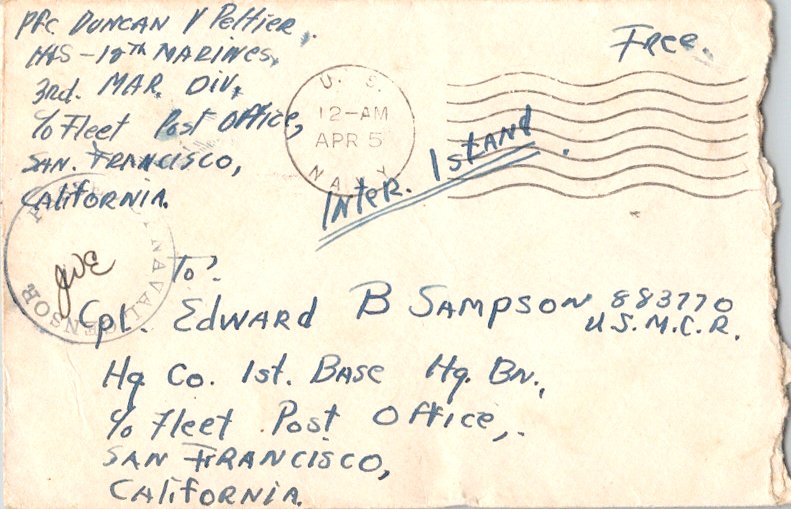 Pfc. DUNCAN V Peltier.
H&S - 12th MARINES,
3rd. MAR. DIV,
c/o Fleet Post Office,
SAN. FRANCISCO,
CALifornia.
Free.
U. S.
12-AM
APR 5
NAVY
INter. IslAND.
PASSED BY NAVAL CENSOR
JWE
To:
Cpl. EdwARD B SAMPSON 883770
U.S.M.C.R.
Hq Co. 1st. BASE Hq. BN.,
c/o Fleet Post Office,
SAN FRANCISCO,
CALifORNIA.